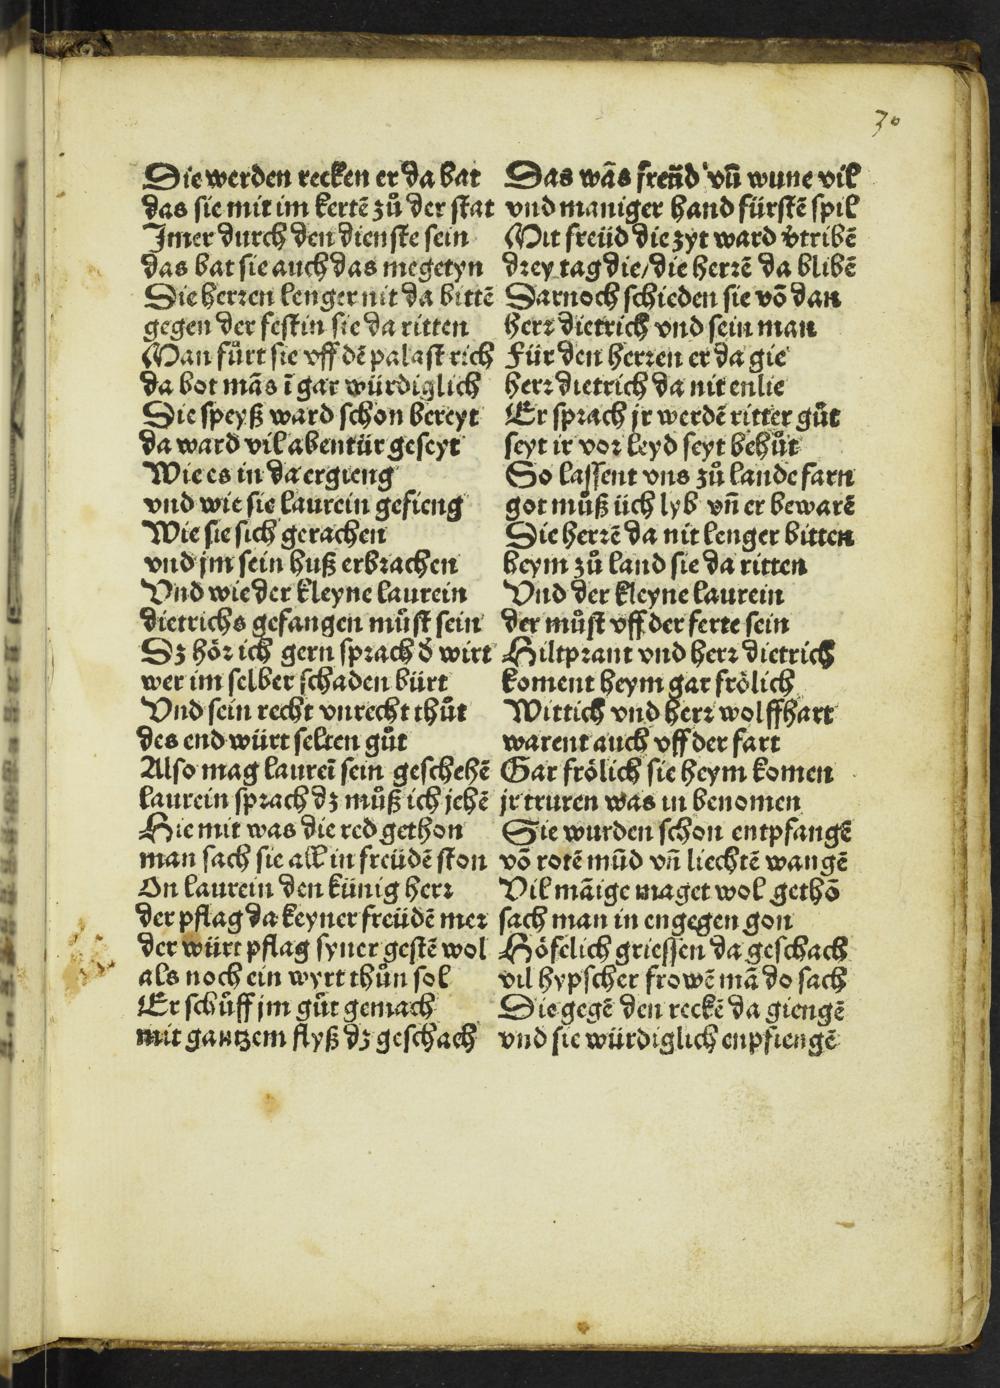 30
Die werden recken er da bat
das sie mit im kertẽ zů der stat
Imer durch den dienste sein
das bat sie auch das megetyn
Die herren lenger nit da bittẽ
gegen der festin sie da ritten
Man fůrt sie vff dẽ palast rich
da bot mãs ĩ gar würdiglich
Die speyß ward schon bereyt
da ward vil abentür geseyt
Wie es in da ergieng
vnd wie sie laurein gefieng
Wie sie sich gerachen
vnd jm sein huß erbrachen
Vnd wie der kleyne laurein
dietrichs gefangen můst sein
Dz hör ich gern sprach d̕ wirt
wer im selber schaden bürt
Vnd sein recht vnrecht thůt
des end würt selten gůt
Also mag laureĩ sein geschehẽ
laurein sprach dz můß ich jehẽ
Hie mit was die red gethon
man sach sie all in freüdẽ ston
On laurein den künig herr
der pflag da keyner freüdẽ mer
der würt pflag syner gestẽ wol
als noch ein wyrt thůn sol
Er schůff jm gůt gemach
mit gantzem flyß dz geschach
Das wãs freñd vñ wune vil
vnd maniger hand fürstẽ spil
Mit freüd die zyt ward v̕tribẽ
drey tag die/die herrẽ da blibẽ
Darnoch schieden sie võ dan
herr dietrich vnd sein man
Für den herren er da gie
herr dietrich da nit enlie
Er sprach jr werdẽ ritter gůt
seyt ir vor leyd seyt behůt
So lassent vns zů lande farn
got můß üch lyb vñ er bewarẽ
Die herrẽ da nit lenger bitten
heym zů land sie da ritten
Vnd der kleyne laurein
der můst vff der ferte sein
Hiltprant vnd herr dietrich
koment heym gar frölich
Wittich vnd herr wolffhart
warent auch vff der fart
Gar frölich sie heym komen
jr truren was in benomen
Sie wurden schon entpfangẽ
võ rotẽ mũd vñ liechtẽ wangẽ
Vil mãige maget wol gethõ
sach man in engegen gon
Höfelich griessen da geschach
vil hypscher frowẽ mã do sach
Die gegẽ den reckẽ da giengẽ
vnd sie würdiglich enpfiengẽ